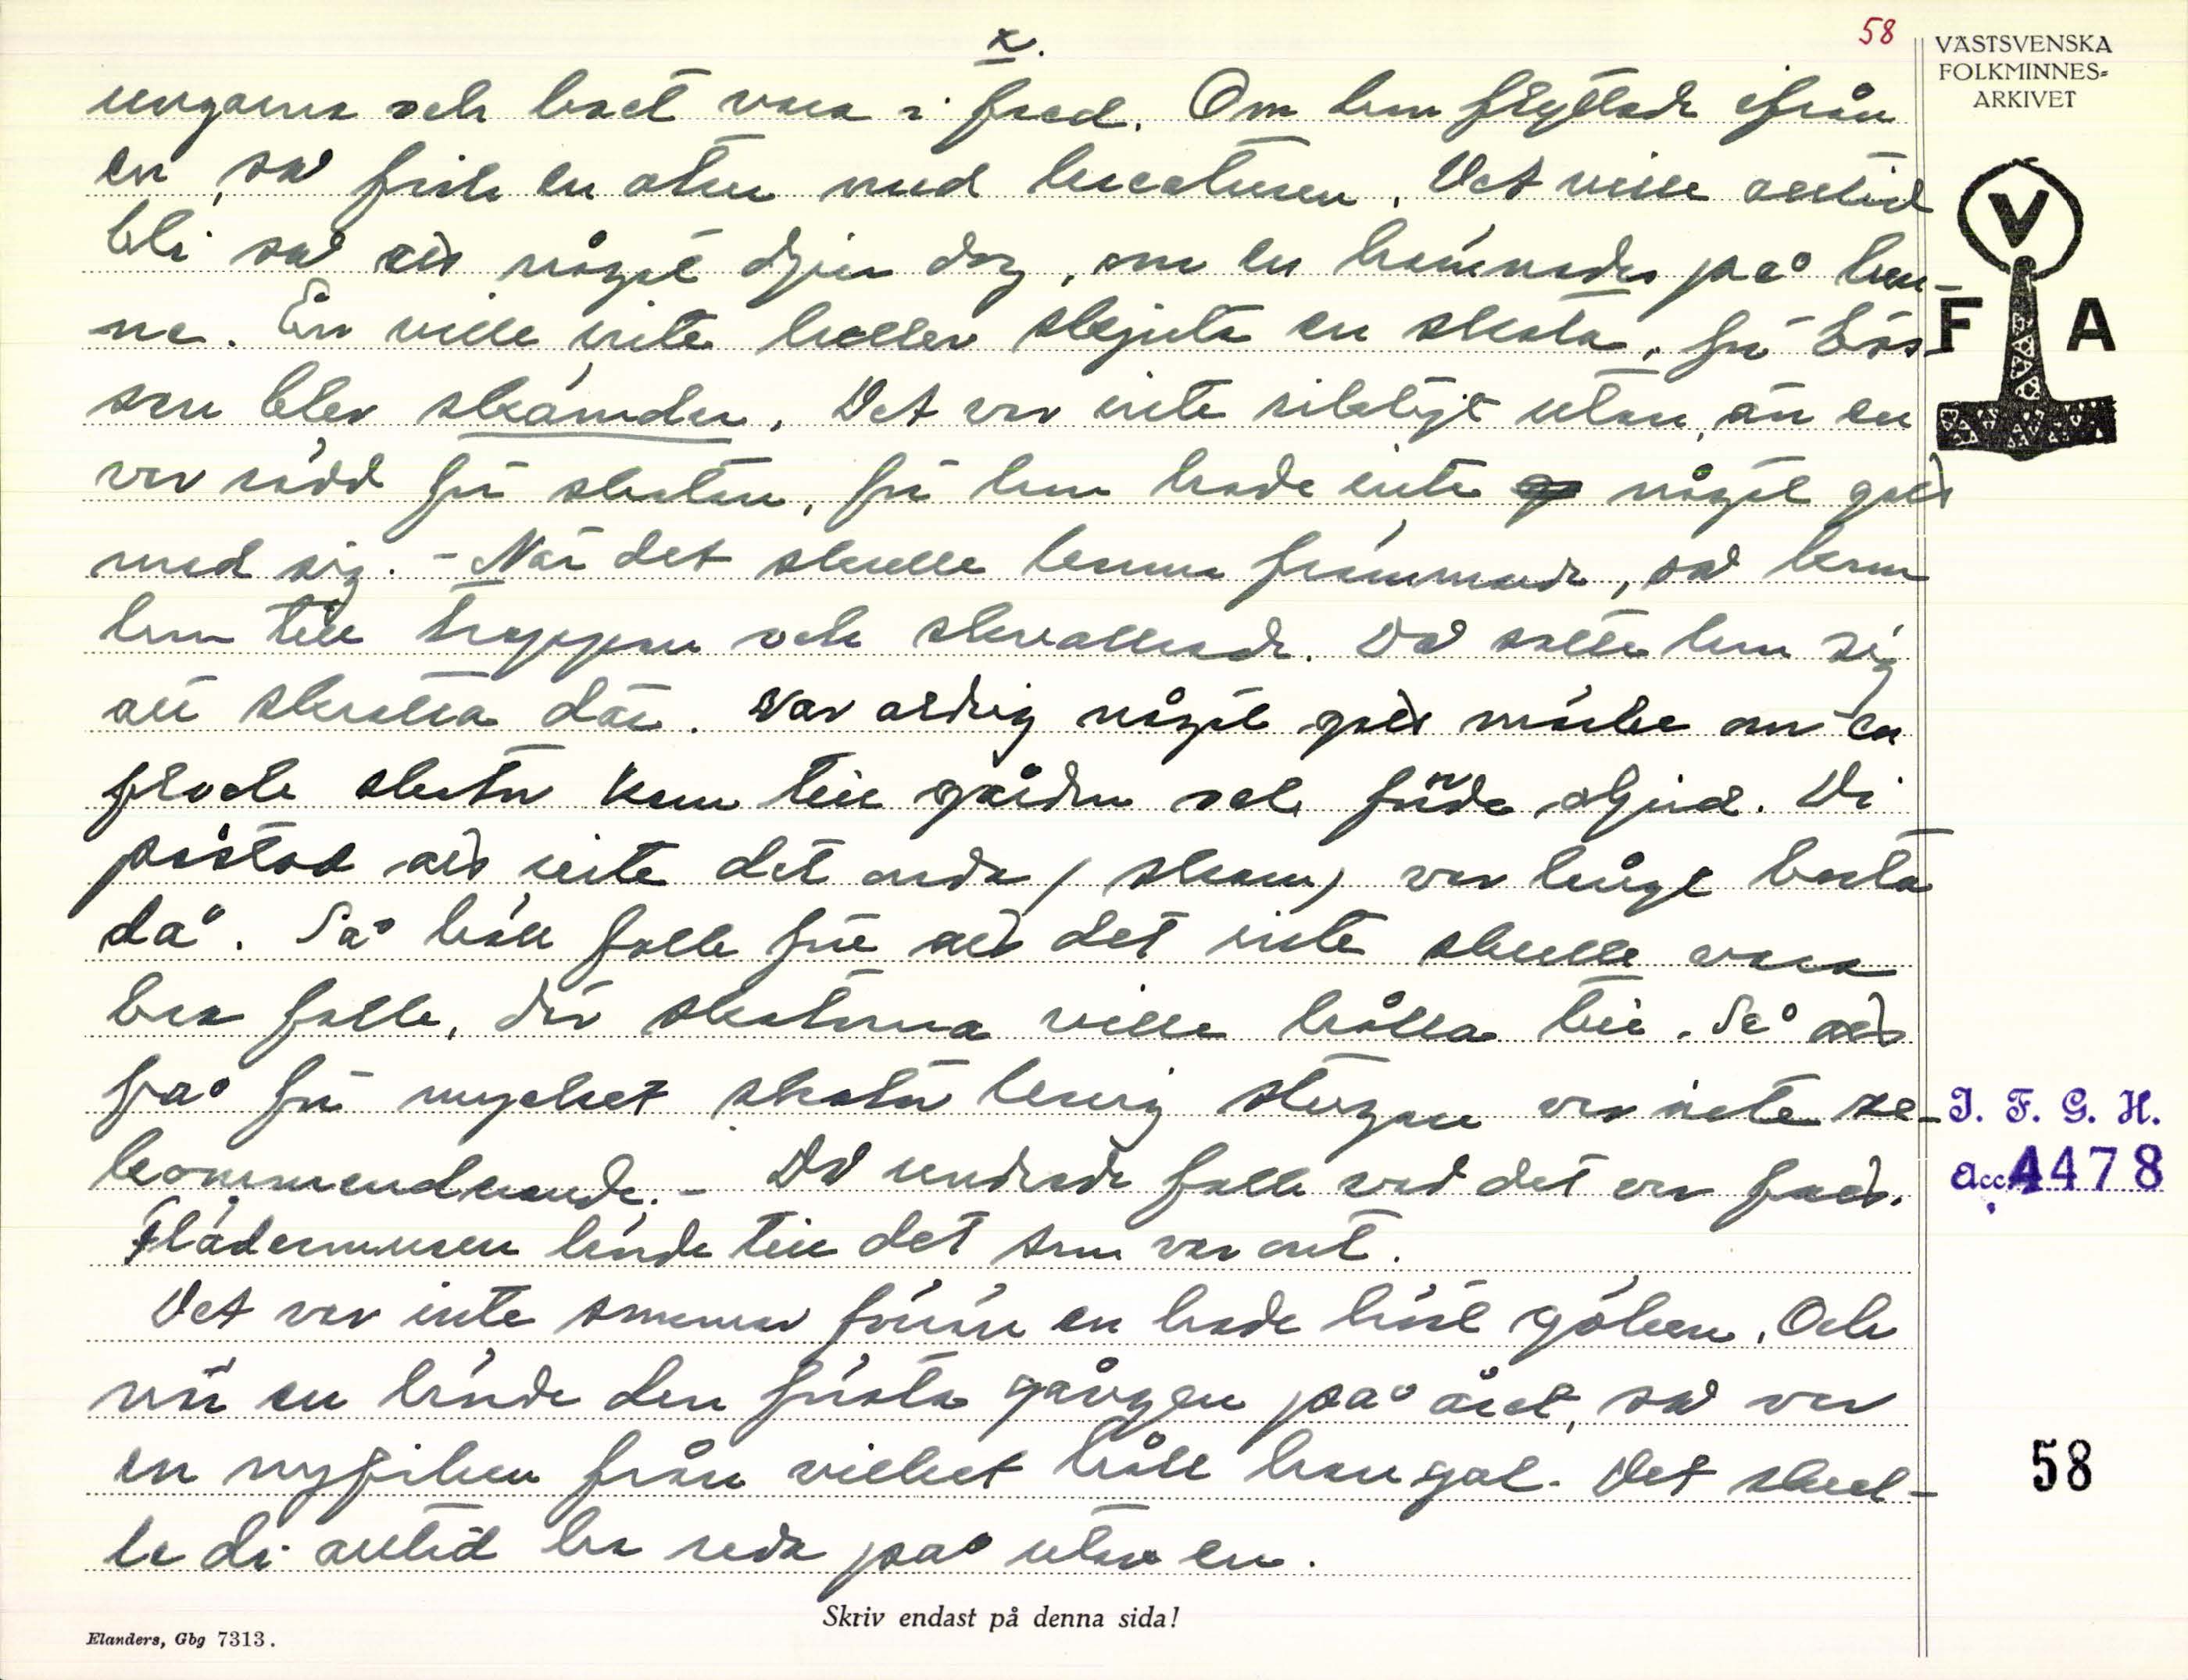 x.
58
VÄSTSVENSKA
FOLKMINNES-
ARKIVET
ungarna och boet vara i fred. Om hon flyttade ifrån
en, så fick en otur med kreaturen. Det ville alltid
bli så att något djur dog, om en hämnades på hen-
ne. En ville inte heller skjuta en skata, för bös-
V
F A
san blev skämder. Det var inte riktigt utan, än en
var rädd för skatan, för hon hade inte något gott
med sig. - När det skulle komma främmande, så kom
hon till trappan och skvallrade. Då satte hon sig
att skratta där. Var aldrig något gott märke om en
flock skator kom till gården och förde oljud. Di
påstod att inte det onda (skam) var långt borta
då. Så höll folk för att det inte skulle vara
bra folk, där skatorna ville hålla till. Så att
få för mycket skator kring stugan var inte re-
kommenderande. - Då undrade folk vad det var fatt.
Flädermusen hörde till det som var ont.
Det var inte sommar förrän en hade hört göken. Och
när en hörde den första gången på året, så var
en nyfiken från vilket håll han gol. Det skul-
le di alltid ha reda på utav en.
I. F. G. H.
Acc. 4478
58
Skriv endast på denna sida!
Elanders, Gbg 7313.